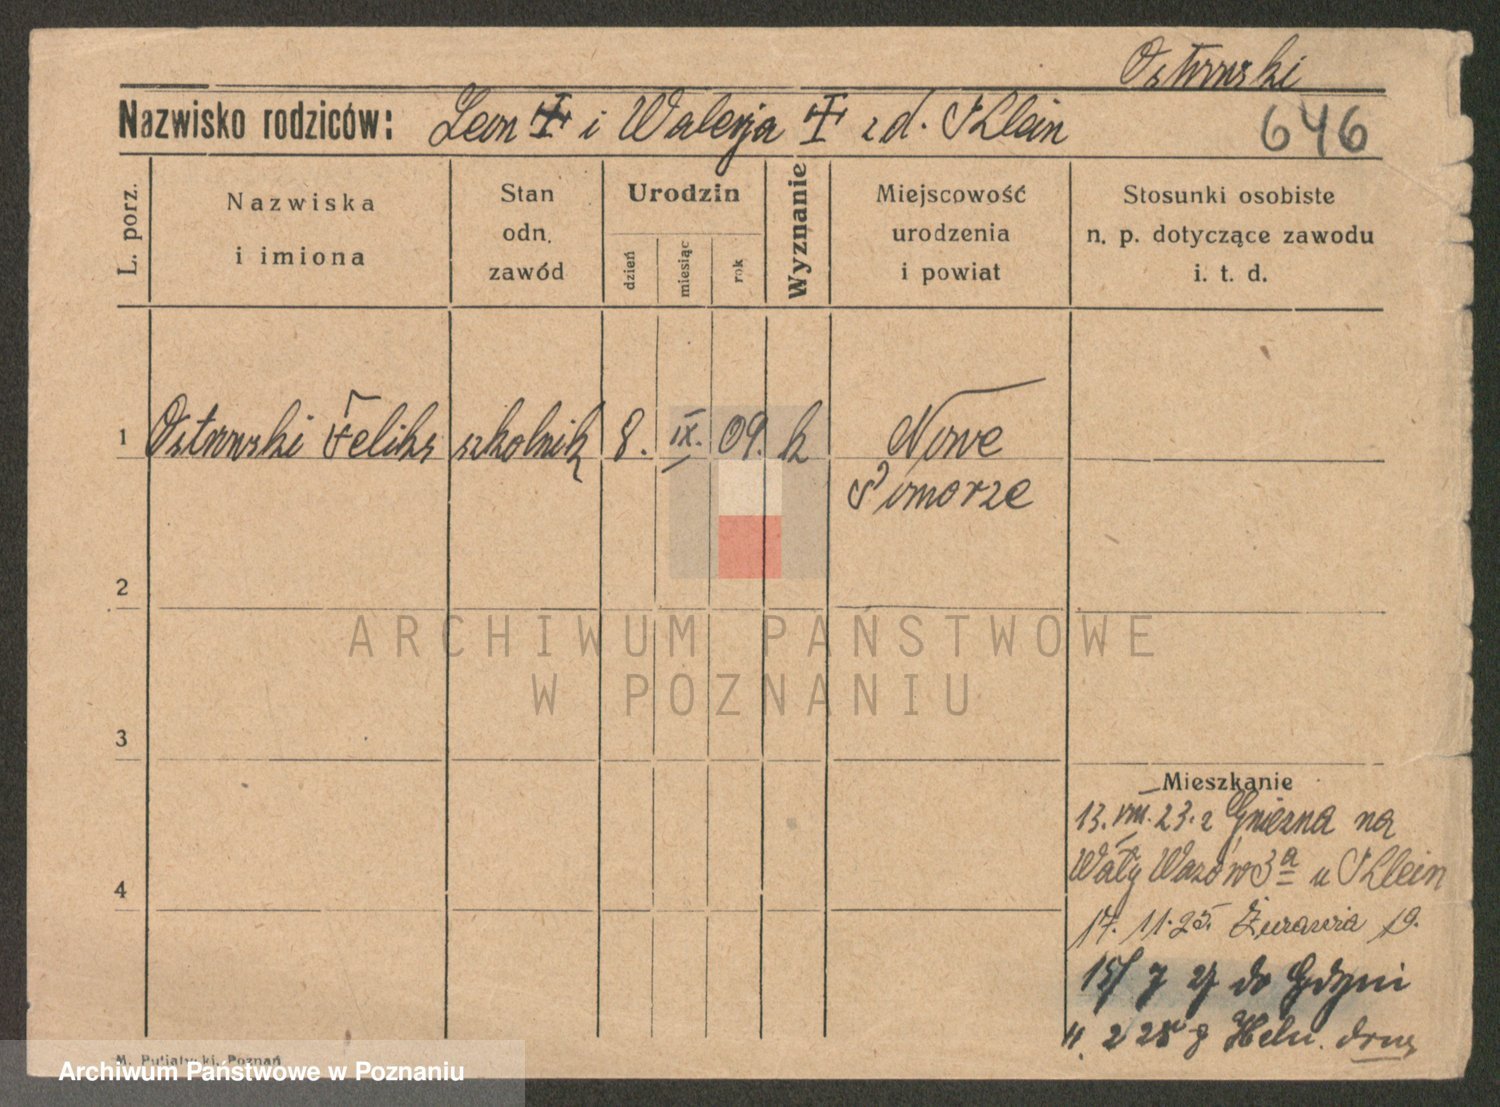 Ostrowski
Nazwisko rodziców: Leon i Walerja z d. Klein
646
L. porz.
Nazwiska
i imiona
Stan
odn.
zawód
Urodzin
dzień
miesiąc
rok
Wyznanie
Miejscowość
urodzenia
i powiat
Stosunki osobiste
n. p. dotyczące zawodu
i. t. d.
1 Ostrowski Feliks szkolnik 8. IX. 09. k Nowe
Pomorze
2
3
4
Mieszkanie
13. VIII. 23. z Gniezna na
Wały Wazów 3a u Klein
17. 11. 25. Żurawia 19.
15/7 27 do Gdyni
M. Putiatycki, Poznań
ARCHIWUM PAŃSTWOWE
W POZNANIU
Archiwum Państwowe w Poznaniu